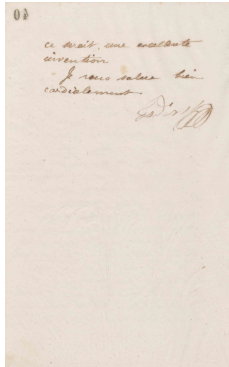 ce serait une excellente
invention
- Je vous salue bien
cordialement.